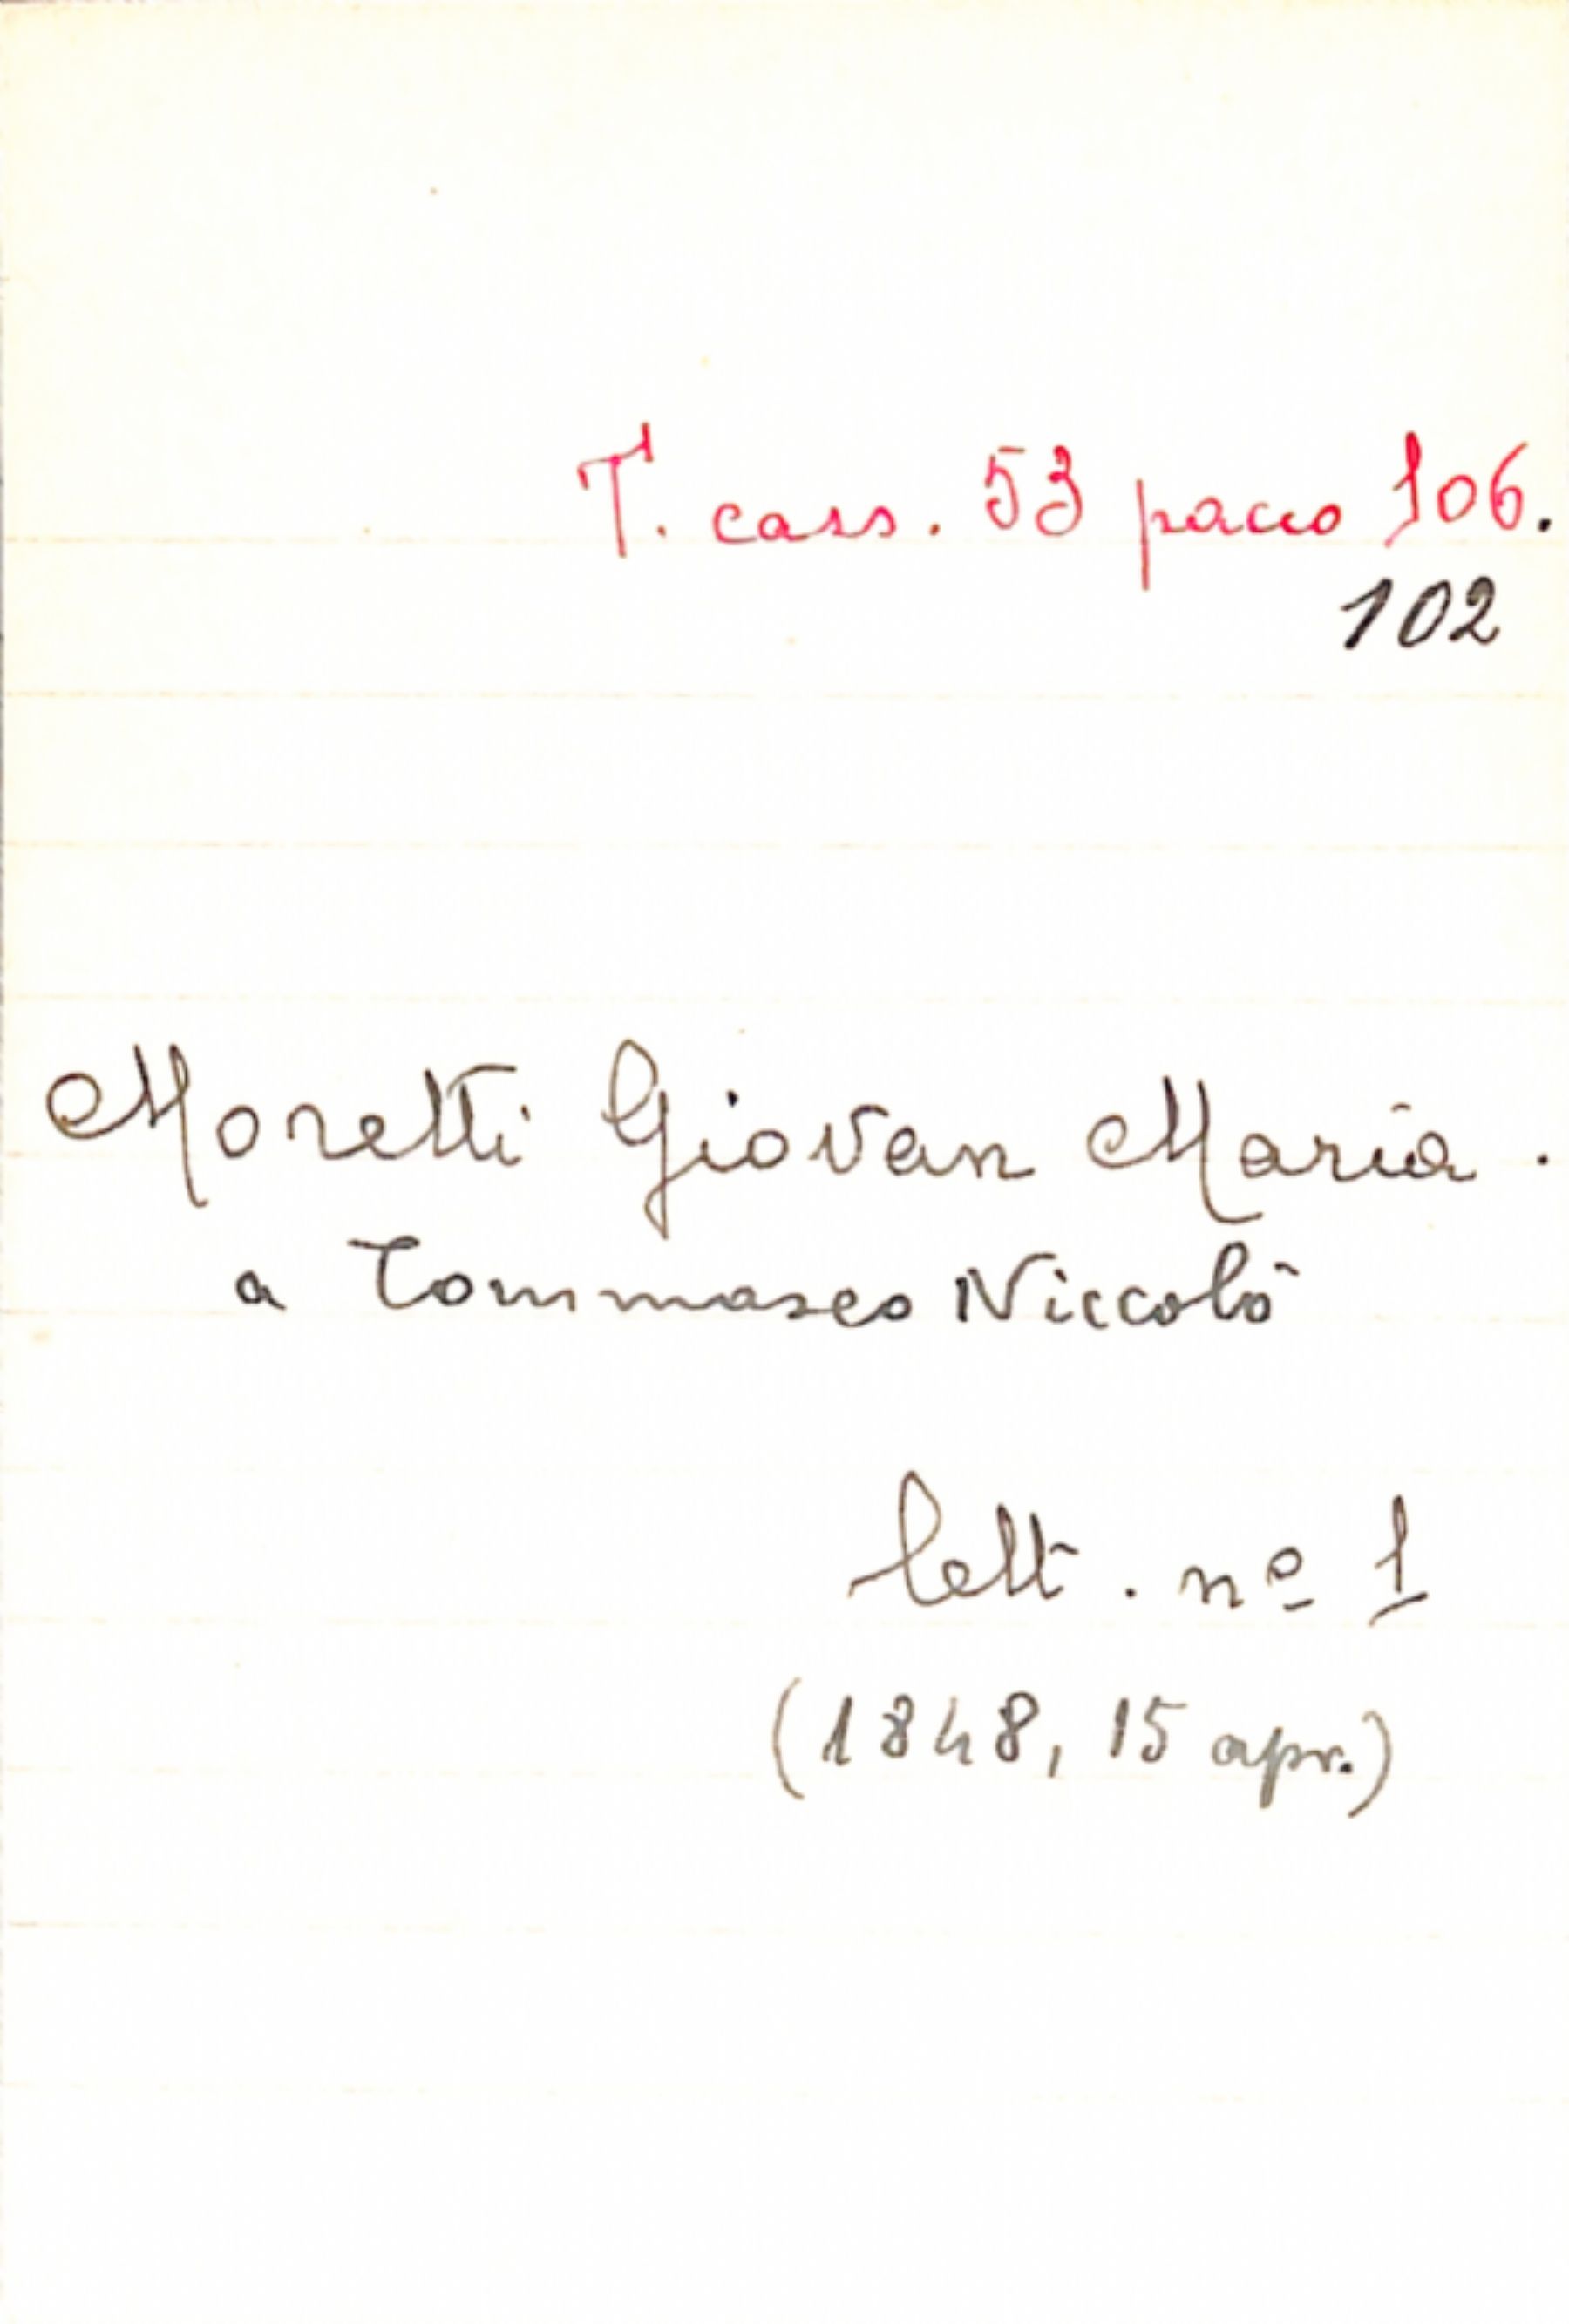 T. cass. 53 pacco 106.
102
Moretti Giovan Maria.
a Tommaseo Niccolò
lett. nº 1
(1848, 15 apr.)